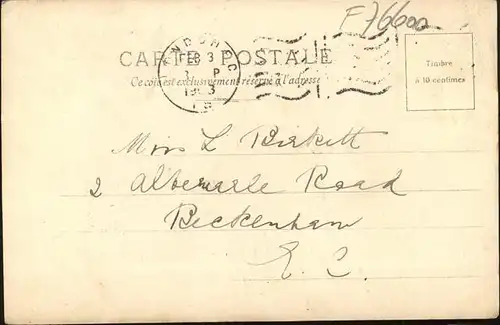 F76600
CARTE POSTALE
Ce coté est exclusivement réservé à l'adresse
Timbre
à 10 centimes
LONDON
FEB 3
P
1903
Miss L Birkett
2 Albemarle Road
Beckenham